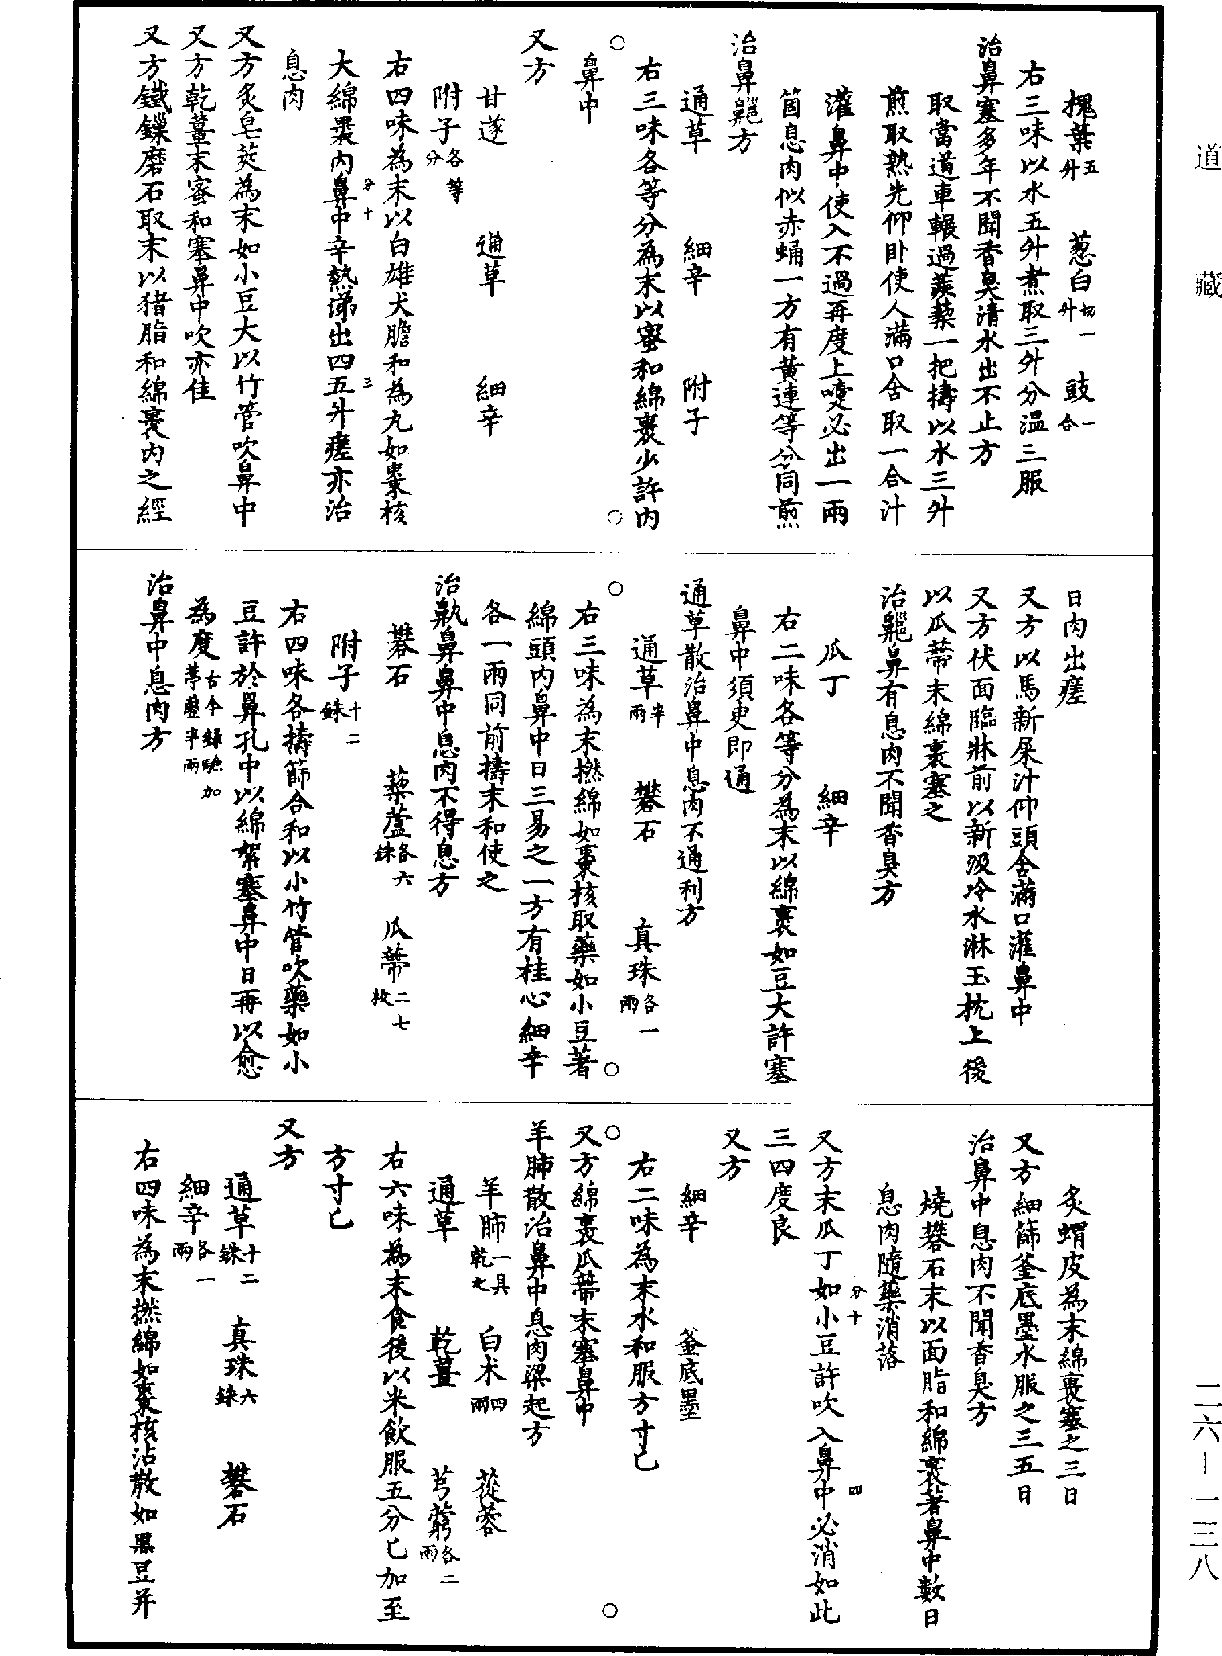 道藏
槐葉五升　葱白切一升　豉一合
右三味以水五升煮取三升分温三服
治鼻塞多年不聞香臭清水出不止方
取當道車輾過蒺䔧一把擣以水三升
煎取熟先仰卧使人滿口含取一合汁
灌鼻中使入不過再度上嚏必出一兩
箇息肉似赤蛹一方有黃連等分同煎
治鼻齆方
通草　細辛　附子
右三味各等分為末以蜜和綿裹少許内
鼻中
又方
甘遂　通草　細辛
附子各等分
右四味為末以白雄犬膽和為丸如棗核
大綿裹内鼻中辛熱涕出四五升瘥亦治
息肉
分十　三
又方炙皂莢為末如小豆大以竹管吹鼻中
又方乾薑末蜜和塞鼻中吹亦佳
又方鐵鏁磨石取末以猪脂和綿裹内之經
日肉出瘥
又方以馬新屎汁仰頭含滿口灌鼻中
又方伏面臨牀前以新汲冷水淋玉枕上後
以瓜蒂末綿裹塞之
治齆鼻有息肉不聞香臭方
瓜丁　細辛
右二味各等分為末以綿裹如豆大許塞
鼻中須臾即通
通草散治鼻中息肉不通利方
通草半兩　礬石　真珠各一兩
右三味為末撚綿如棗核取藥如小豆著
綿頭内鼻中日三易之一方有桂心細辛
各一兩同前擣末和使之
治鼽鼻鼻中息肉不得息方
礬石　藜蘆各六銖　瓜蒂二七枚
附子十二銖
右四味各擣篩合和以小竹管吹藥如小
豆許於鼻孔中以綿絮塞鼻中日再以愈
為度古今録驗加葶藶半兩
治鼻中息肉方
炙蝟皮為末綿裹塞之三日
又方細篩釜底墨水服之三五日
治鼻中息肉不聞香臭方
燒礬石末以面脂和綿裹著鼻中數日
息肉隨藥消落
分十　四
又方末瓜丁如小豆許吹入鼻中必消如此
三四度良
又方
細辛　釜底墨
右二味為末水和服方寸匕
又方綿裹瓜蒂末塞鼻中
羊肺散治鼻中息肉梁起方
羊肺一具乾之　白术四兩　蓯蓉
通草　乾薑　芎藭各二兩
右六味為末食後以米飲服五分匕加至
方寸匕
又方
通草十二銖　真珠六銖　礬石
細辛各一兩
右四味為末撚綿如棗核沾散如黑豆并
二六―一三八